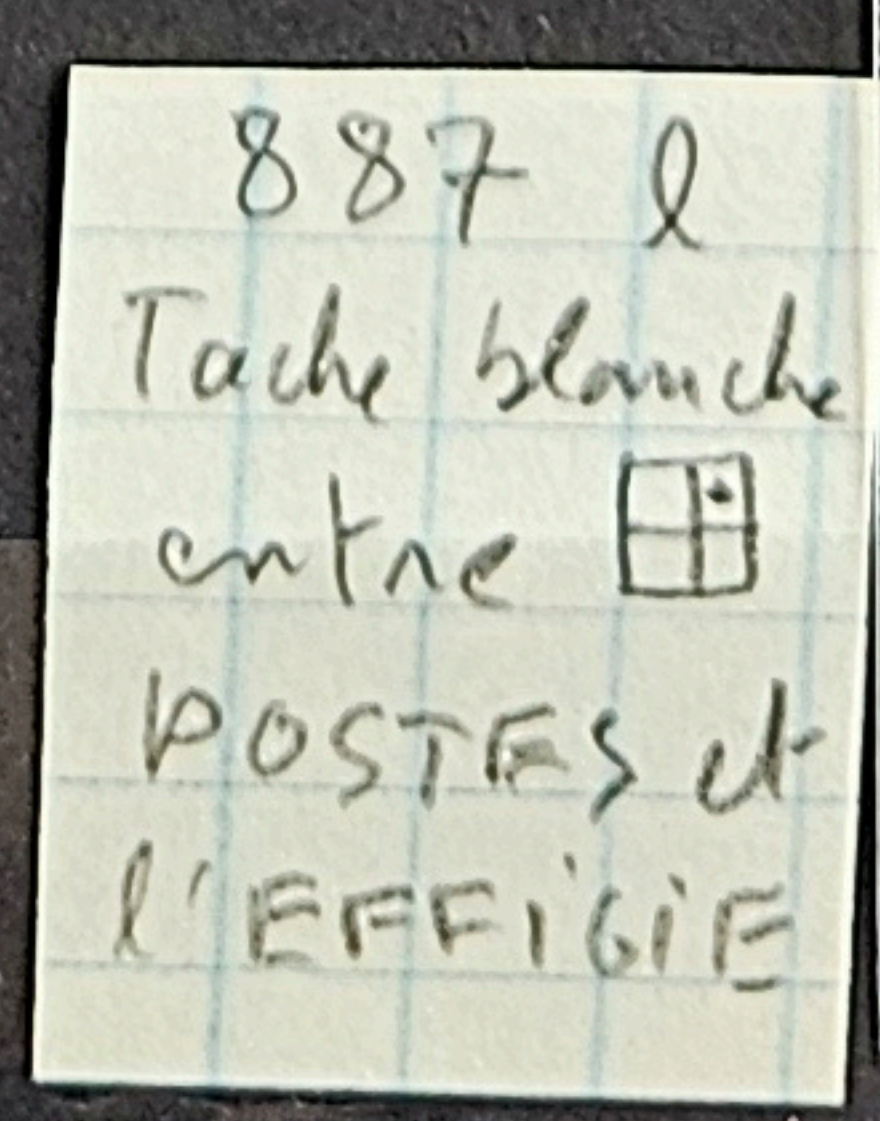 887 l
Tache blanche
entre
POSTES et
l'EFFiGiE